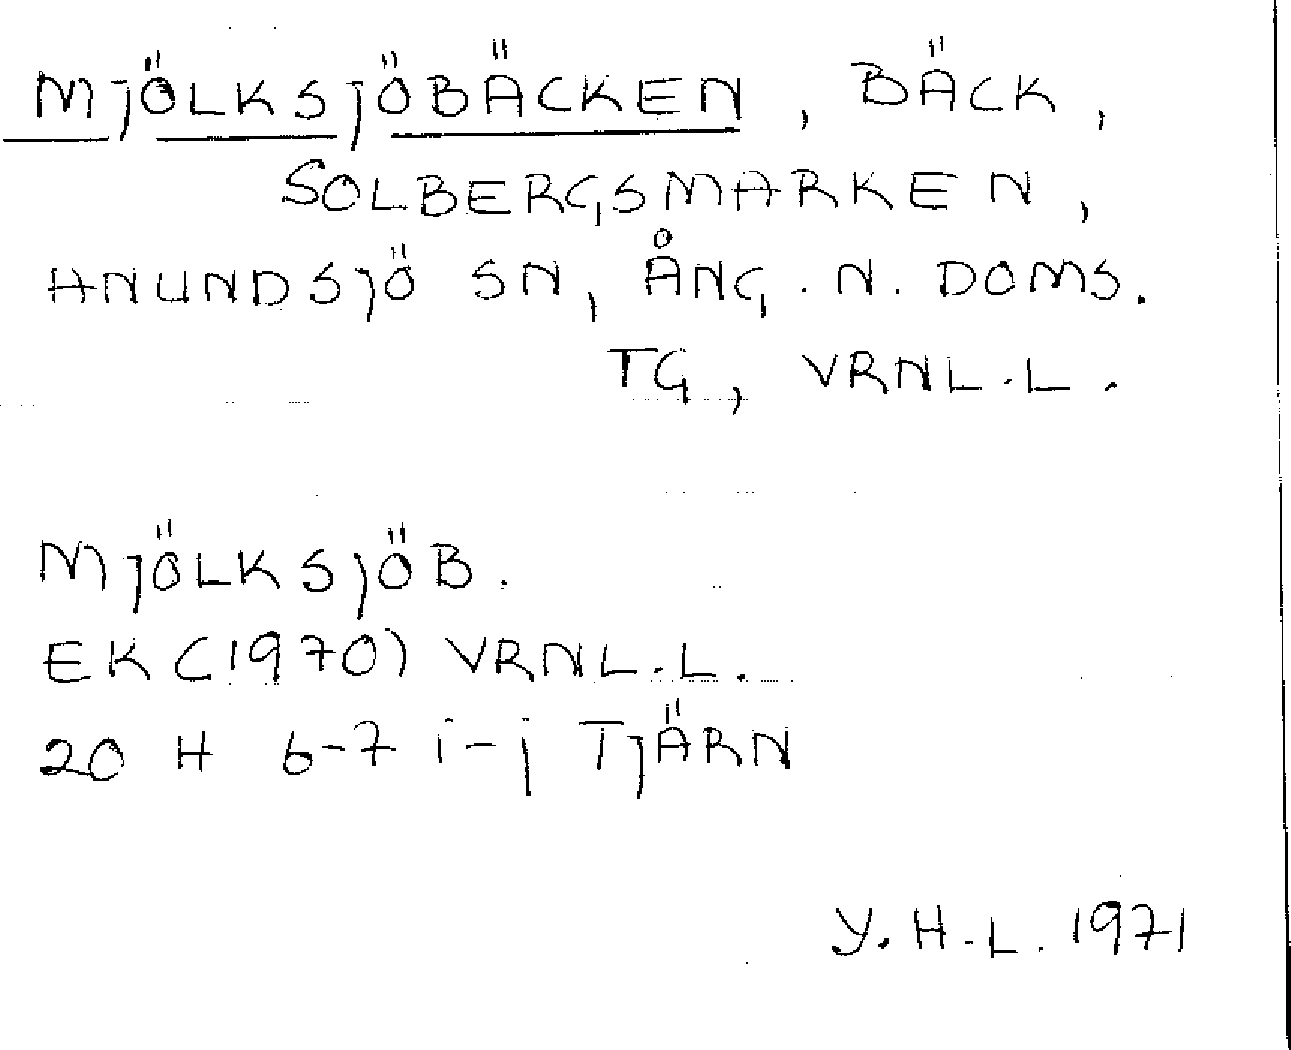 MJÖLKSJÖBÄCKEN, BÄCK,
SOLBERGSMARKEN,
ANUNDSJÖ SN, ÅNG. N. DOMS.
TG, VRNL.L.
MJÖLKSJÖB.
EK (1970) VRNL.L.
20 H 6-7 i-j TJÄRN
Y.H-L. 1971